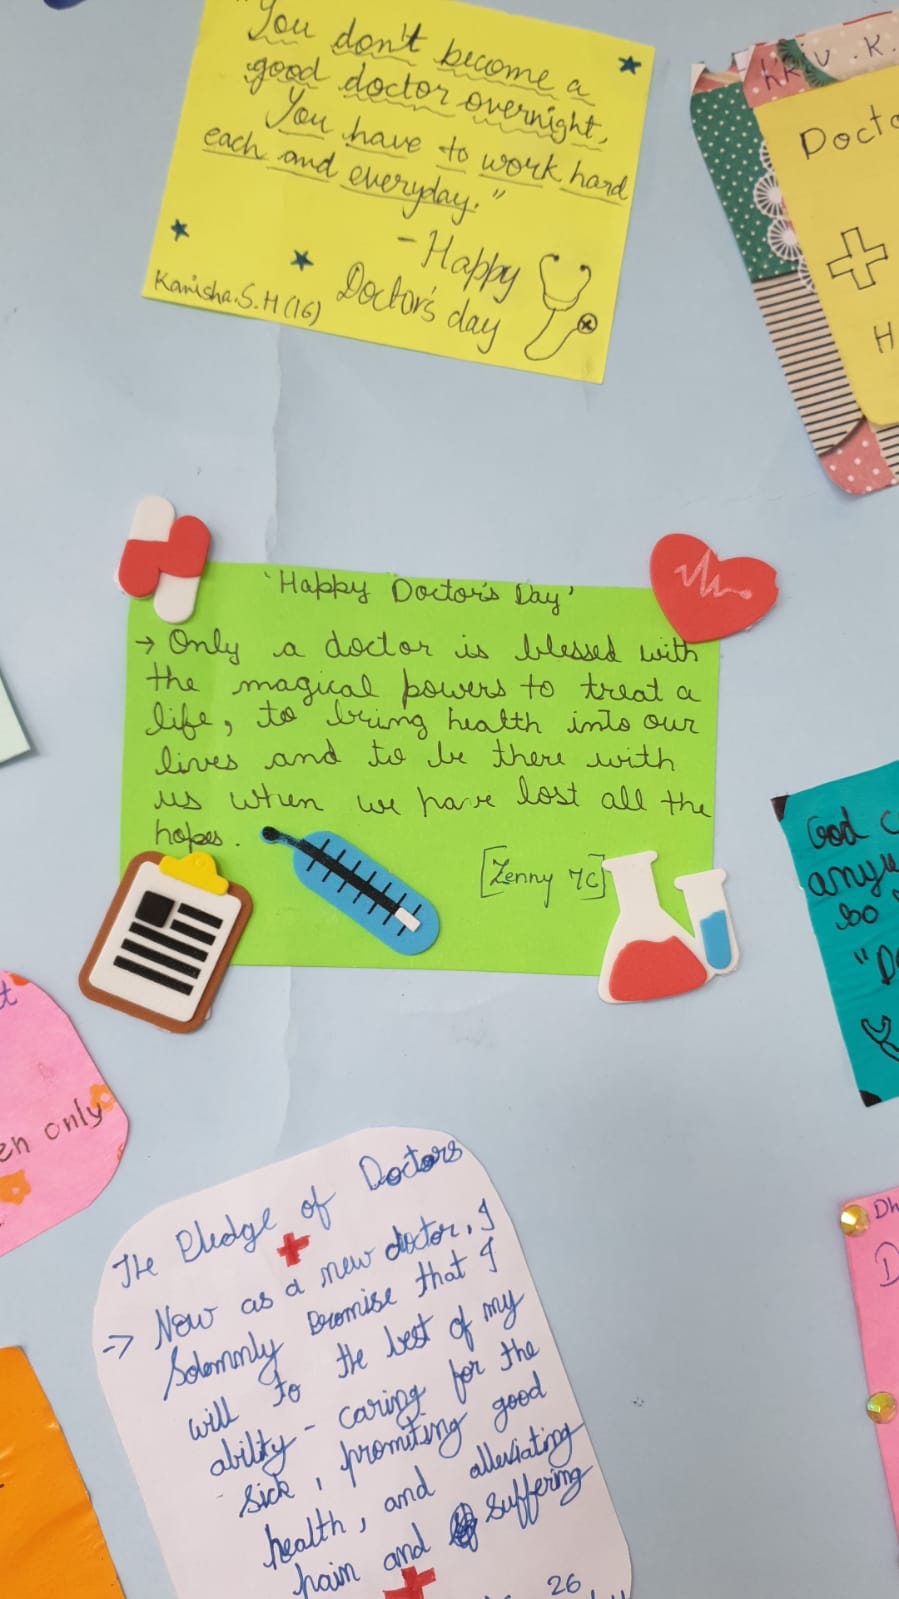 "You don't become a
good doctor overnight,
You have to work hard
each and everyday."
- Happy
Doctor's day
Kanisha.S.H (16)
hriv.K.
Docto
H
'Happy Doctor's Day'
→ Only a doctor is blessed with
the magical powers to treat a
life, to bring health into our
lives and to be there with
us when we have lost all the
hopes.
[Zenny 7C]
God c
anyw
so
"D
t
en only
The Pledge of Doctors
-> Now as a new doctor, I
Solemnly promise that I
will to the best of my
ability - caring for the
sick, promiting good
health, and alleviating
pain and suffering
26
Dh
D